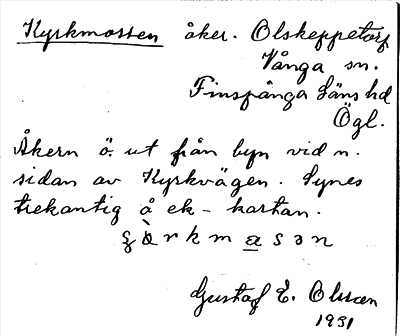 Kyrkmossen åker. Olskeppetorp
Vånga sn.
Finspånga Läns hd
Ögl.
Åkern ö. ut från byn vid n.
sidan av Kyrkvägen. Synes
trekantig å ek-kartan.
Gustaf E. Olsson
1931